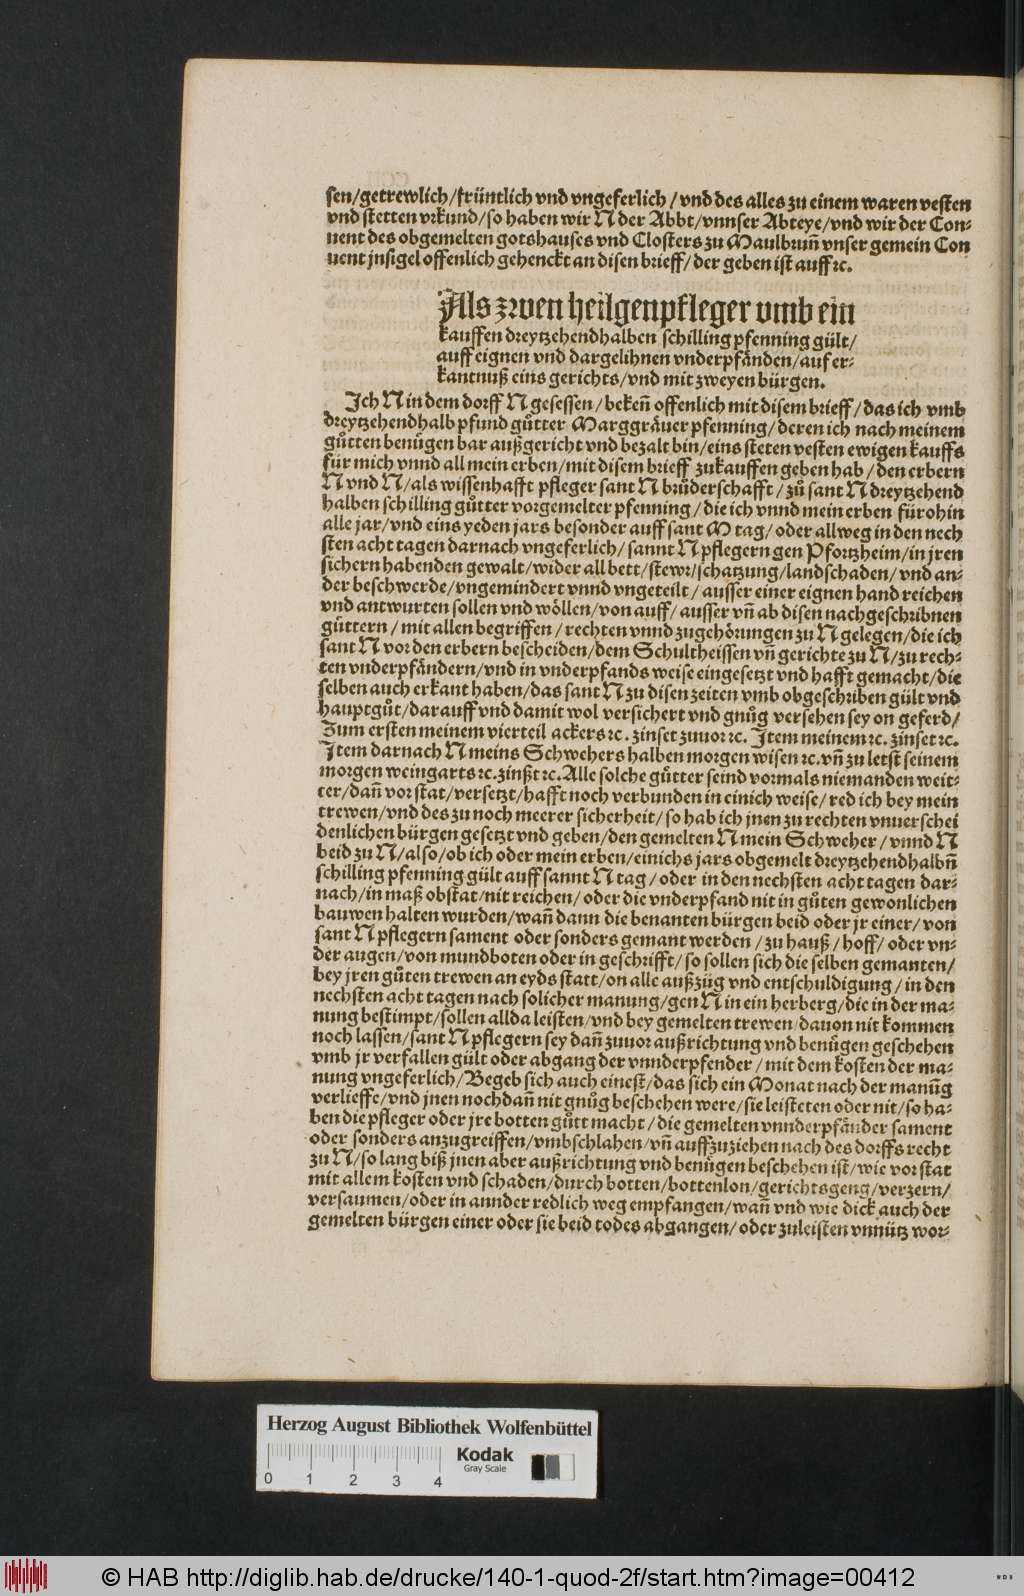 sen/getrewlich/früntlich vnd vngeferlich/vnd des alles zu einem waren vesten
vnd stetten vrkund/so haben wir N der Abbt/vnnser Abteye/vnd wir der Con-
uent des obgemelten gotshauses vnd Closters zu Maulbruñ vnser gemein Con
uent jnsigel offenlich gehenckt an disen brieff/der geben ist auff ꝛc.
Als zwen heilgenpfleger vmb ein
kauffen dreytzehendhalben schilling pfenning gült/
auff eignen vnd dargelihnen vnderpfänden/auf er-
kantnuß eins gerichts/vnd mit zweyen bürgen.
Ich N in dem dorff N gesessen/bekeñ offenlich mit disem brieff/das ich vmb
dreytzehendhalb pfund gůtter Marggräuer pfenning/deren ich nach meinem
gůtten benügen bar außgericht vnd bezalt bin/eins steten vesten ewigen kauffs
für mich vnnd all mein erben/mit disem brieff zukauffen geben hab/den erbern
N vnd N/als wissenhafft pfleger sant N brůderschafft/zů sant N dreytzehend
halben schilling gůtter vorgemelter pfenning/die ich vnnd mein erben fürohin
alle jar/vnd eins yeden jars besonder auff sant M tag/oder allweg in den nech
sten acht tagen darnach vngeferlich/sannt N pflegern gen Pfortzheim/in jren
sichern habenden gewalt/wider all bett/stewr/schatzung/landschaden/vnd an-
der beschwerde/vngemindert vnnd vngeteilt/ausser einer eignen hand reichen
vnd antwurten sollen vnd wöllen/von auff/ausser vñ ab disen nachgeschribnen
güttern/mit allen begriffen/rechten vnnd zugehörungen zu N gelegen/die ich
sant N vor den erbern bescheiden/dem Schultheissen vñ gerichte zu N/zu rech-
ten vnderpfändern/vnd in vnderpfands weise eingesetzt vnd hafft gemacht/die
selben auch erkant haben/das sant N zu disen zeiten vmb obgeschriben gült vnd
hauptgůt/darauff vnd damit wol versichert vnd gnůg versehen sey on geferd/
Zum ersten meinem vierteil ackers ꝛc. zinset zuuor ꝛc. Item meinem ꝛc. zinset ꝛc.
Item darnach N meins Schwehers halben morgen wisen ꝛc. vñ zu letst seinem
morgen weingarts ꝛc. zinßt ꝛc. Alle solche gütter seind vormals niemanden weit-
ter/dañ vor stat/versetzt/hafft noch verbunden in einich weise/red ich bey mein
trewen/vnd des zu noch meerer sicherheit/so hab ich jnen zu rechten vnuerschei
denlichen bürgen gesetzt vnd geben/den gemelten N mein Schweher/vnnd N
beid zu N/also/ob ich oder mein erben/einichs jars obgemelt dreytzehendhalbñ
schilling pfenning gült auff sannt N tag/oder in den nechsten acht tagen dar-
nach/in maß obstat/nit reichen/oder die vnderpfand nit in gůten gewonlichen
bauwen halten wurden/wañ dann die benanten bürgen beid oder jr einer/von
sant N pflegern sament oder sonders gemant werden/zu hauß/hoff/oder vn-
der augen/von mundboten oder in geschrifft/so sollen sich die selben gemanten/
bey jren gůten trewen an eyds statt/on alle außzüg vnd entschuldigung/in den
nechsten acht tagen nach solicher manung/gen N in ein herberg/die in der ma-
nung bestimpt/sollen allda leisten/vnd bey gemelten trewen/dauon nit kommen
noch lassen/sant N pflegern sey dañ zuuor außrichtung vnd benügen geschehen
vmb jr verfallen gült oder abgang der vnnderpfender/mit dem kosten der ma-
nung vngeferlich/Begeb sich auch einest/das sich ein Monat nach der manũg
verlieffe/vnd jnen nochdañ nit gnůg beschehen were/sie leisteten oder nit/so ha-
ben die pfleger oder jre botten gůtt macht/die gemelten vnnderpfänder sament
oder sonders anzugreiffen/vmbschlahen/vñ auffzuziehen nach des dorffs recht
zu N/so lang biß jnen aber außrichtung vnd benügen beschehen ist/wie vor stat
mit allem kosten vnd schaden/durch botten/bottenlon/gerichtsgeng/verzern/
versaumen/oder in annder redlich weg empfangen/wañ vnd wie dick auch der
gemelten bürgen einer oder sie beid todes abgangen/oder zuleisten vnnütz wor-
Herzog August Bibliothek Wolfenbüttel
Kodak
Gray Scale
0 1 2 3 4
© HAB http://diglib.hab.de/drucke/140-1-quod-2f/start.htm?image=00412